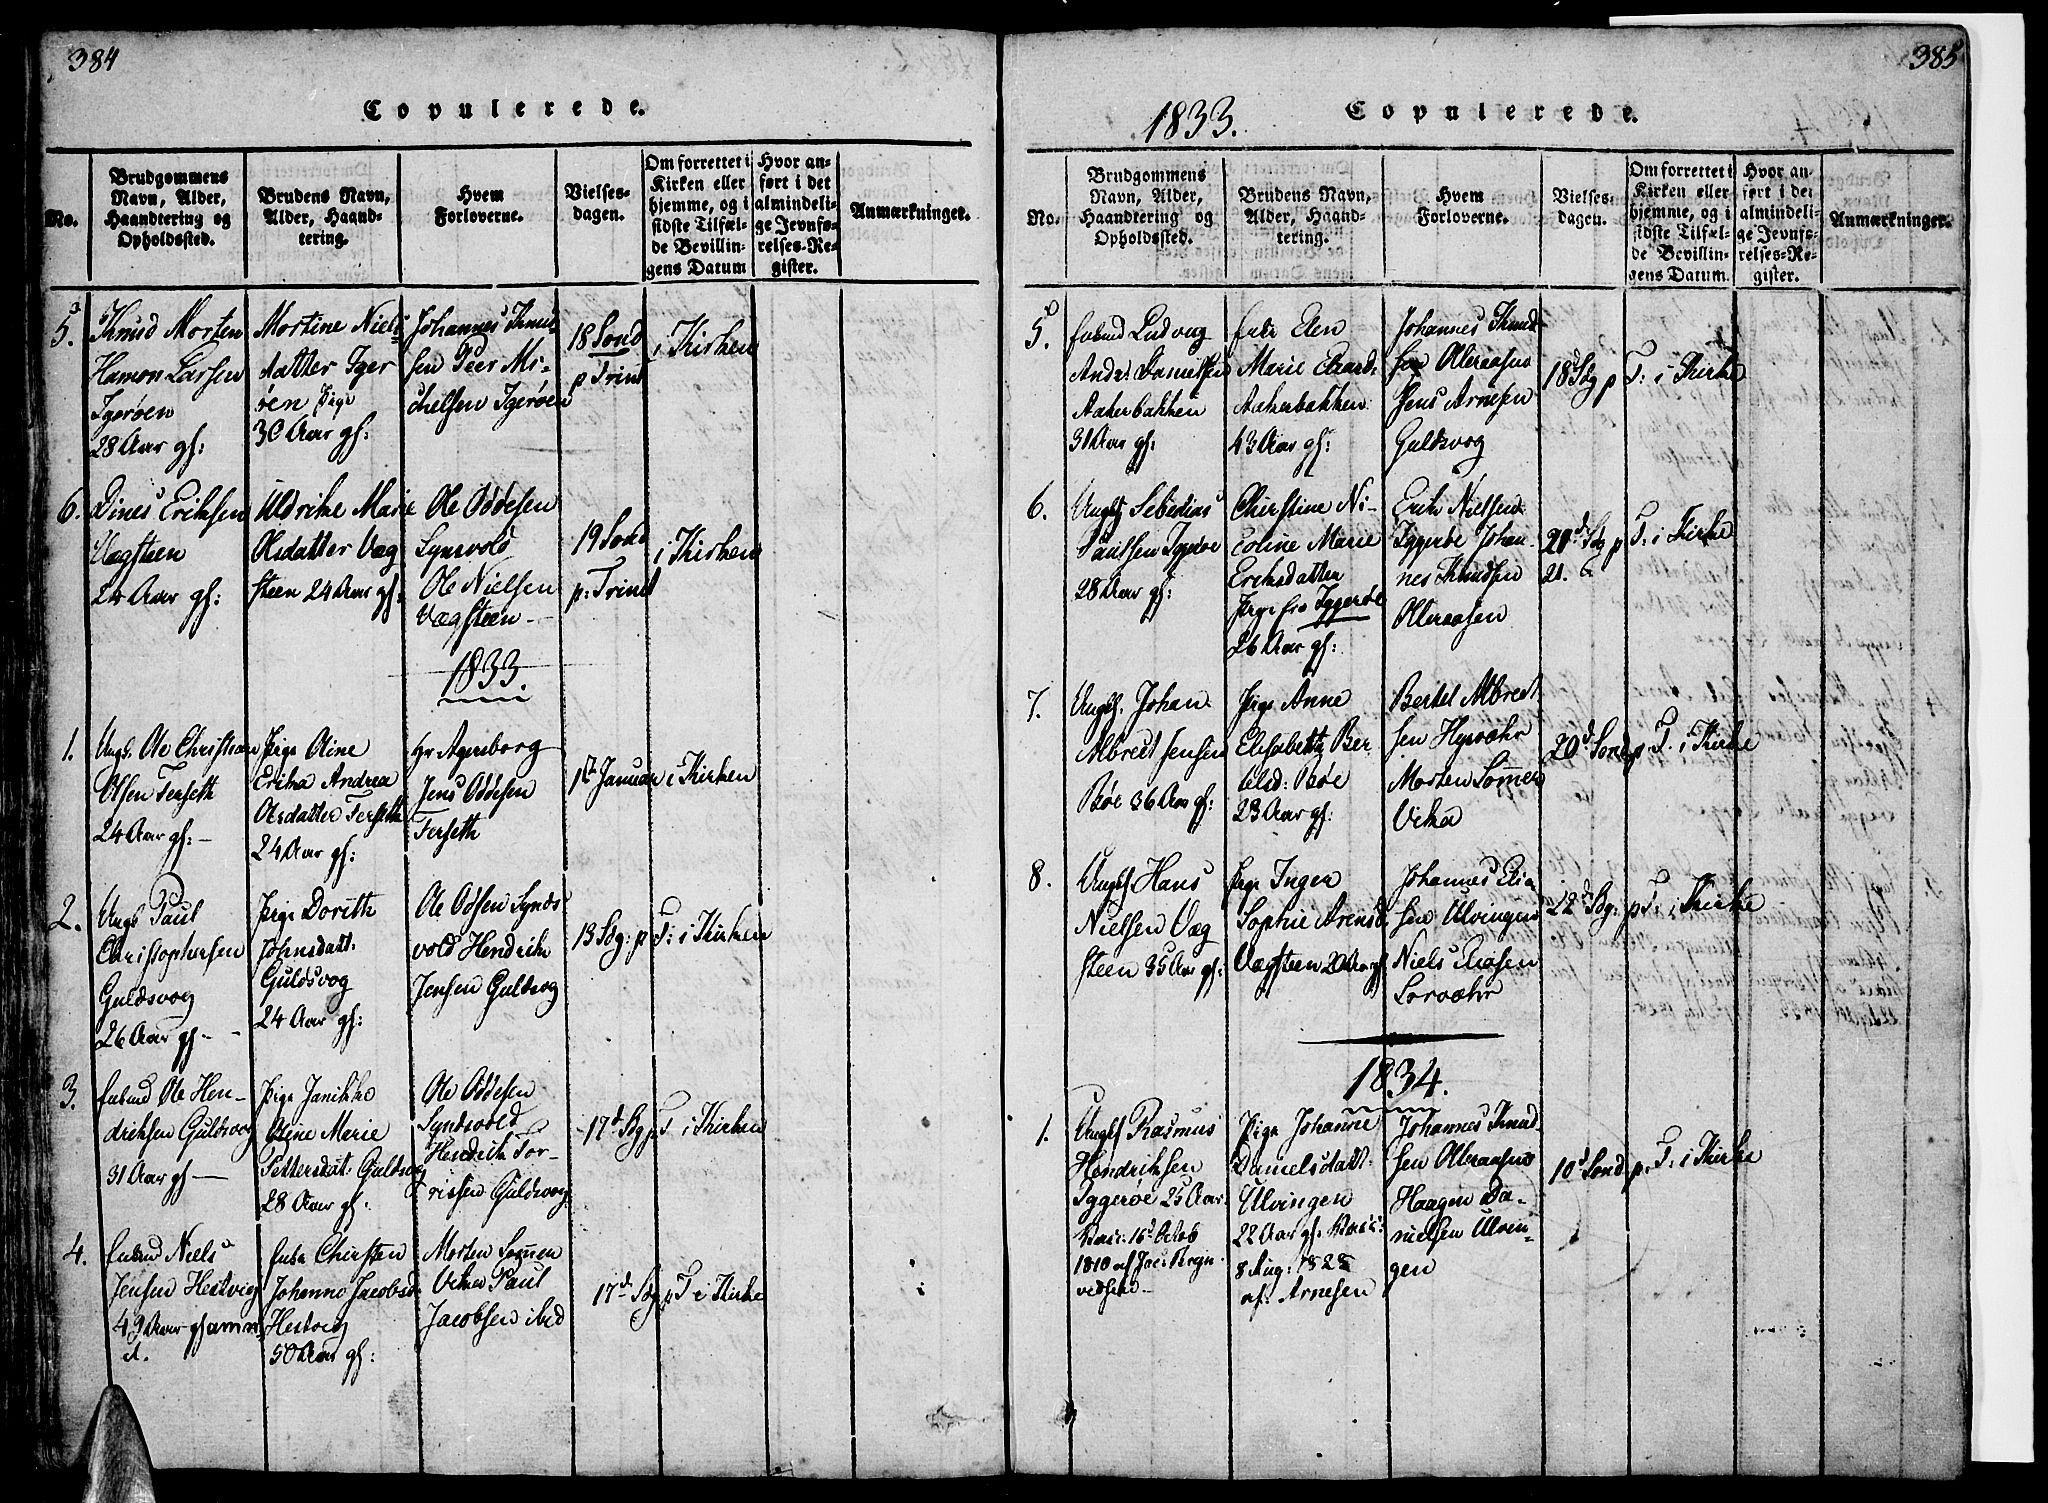 384
Copulerede.
No.
Brudgommens
Navn, Alder,
Haandtering og
Opholdssted.
Brudens Navn,
Alder, Haand-
tering.
Hvem
Forloverne.
Vielses-
dagen.
Om forrettet i
Kirken eller
hjemme, og i
sidste Tilfæl-
de Bevillin-
gens Datum
Hvor an-
ført i det
almindeli-
ge Jevnfø-
relses-Re-
gister.
Anmærkninger.
5.
Knud Morten
Hamon Larsen
Igerøen
28 Aar gl:
Mortine Niels
datter Iger
øen Pige
30 Aar gl:
Johannes Knud
sen Peer Mi-
chelsen Igerøen
18 Sønd
p Trinit
i Kirken
6.
Dines Eriksen
Vægsteen
24 Aar gl:
Uldrike Marie
Olsdatter Væg
steen 24 Aar gl:
Ole Oddesen
Synsvold
Ole Nielsen
Vægsteen
19 Sønd
p: Trinit
i Kirken
1833.
1.
Ungk. Ole Christian
Olsen Forseth
24 Aar gl:
Pige Oline
Erika Andrea
Olsdatter Forseth
24 Aar gl:
Hr Agersborg
Jens Oddesen
Forseth
1st Januar
i Kirken
2.
Ungk Paul
Christophersen
Guldsvog
26 Aar gl
Pige Dorith
Johnsdatt:
Guldsvog
24 Aar gl:
Ole Odsen Synds
vold Hendrik
Jensen Guldsvog
13 Sdg: p T:
i Kirken
3.
Enkmd Ole Hen-
driksen Guldsvog
31 Aar gl
Pige Janikke
Oline Marie
Pettersdat. Guldsvog
28 Aar gl.
Ole Oddesen
Syndsvold
Hendrik Tor-
rissen Guldsvog
17d Sdg p T
i Kirken
4.
Enkmd Niels
Jensen Hestvig
49 Aar gl
Enke Chirsten
Johanna Jacobsd
Hestvig
50 Aar gl:
Morten Sømmen
Vika Paul
Jacobsen ibid
17d Sdg p T
i Kirke
385
1833.
Copulerede.
No.
Brudgommens
Navn, Alder,
Haandtering og
Opholdssted.
Brudens Navn,
Alder, Haand-
tering.
Hvem
Forloverne.
Vielses-
dagen.
Om forrettet i
Kirken eller
hjemme, og i
sidste Tilfæl-
de Bevillin-
gens Datum.
Hvor an-
ført i det
almindeli-
ge Jevnfø-
relses-Re-
gister.
Anmærkninger.
5.
Enkmd Ludvig
Andr. Danielsen
Aakerbakken
31 Aar gl:
Enke Elen
Marie
Aakerbakken
43 Aar gl:
Johannes Knud
sen Olleraasen
Jens Arnesen
Guldsvog
18d Sdg p T:
i Kirke
6.
Ungk Sebedias
Paulsen Iggerøe
28 Aar gl:
Chirstine Ni-
coline Marie
Eriksdatter
Pige fra Iggerøe
26 Aar gl:
Erik Nielsen
Iggerøe Johan-
nes Knudsen
Olleraasen
21.
Sdg p T:
i Kirke
7.
Ungk. Johan
Albredtsensen
Bøe 36 Aar gl:
Pige Anne
Elisabeth Ber
telsd: Bøe
23 Aar gl:
Bertel Albredt
sen Hysvæhr
Morten Sømmen
Vika
20d Sønd p T.
i Kirke
8.
Ungk Hans
Nielsen Væg
steen 35 Aar gl:
Pige Inger
Sophie Arensd.
Vægsteen 20 Aar gl
Johannes Elia
sen Ulvingen
Niels Eliasen
Sorvæhr
22d Sdg: p T:
i Kirke
1834.
1.
Ungk Rasmus
Hendriksen
Iggerøe 25 Aar
Vacc: 16d Octob
1810 af Jac:
Pige Johanne
Danielsdatt:
Ulvingen
22 Aar gl. Vacc:
8 Aug: 1828
af: Arnesen
Johannes Knud
sen Olleraasen
Haagen Da-
nielsen Ulvin-
gen
10d Sønd p: T:
i Kirke